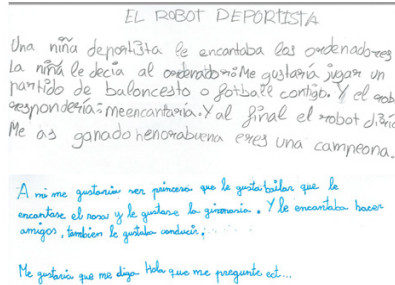 EL ROBOT DEPORTISTA
Una niña deportista le encantaba los ordenadores
La niña le decia al ordenador: Me gustaría jugar un
partido de baloncesto o fotball contigo. Y el robot
respondería: meencantaría. Y al final el robot diría
Me as ganado henorabuena eres una campeona.
A mi me gustaria ser princesa que le gusta bailar que le
encantase el rosa y le gustase la gimnasia. Y le encantaba hacer
amigos, tambien le gustaba conducir.
Me gustaria que me diga Hola que me pregunte ect...